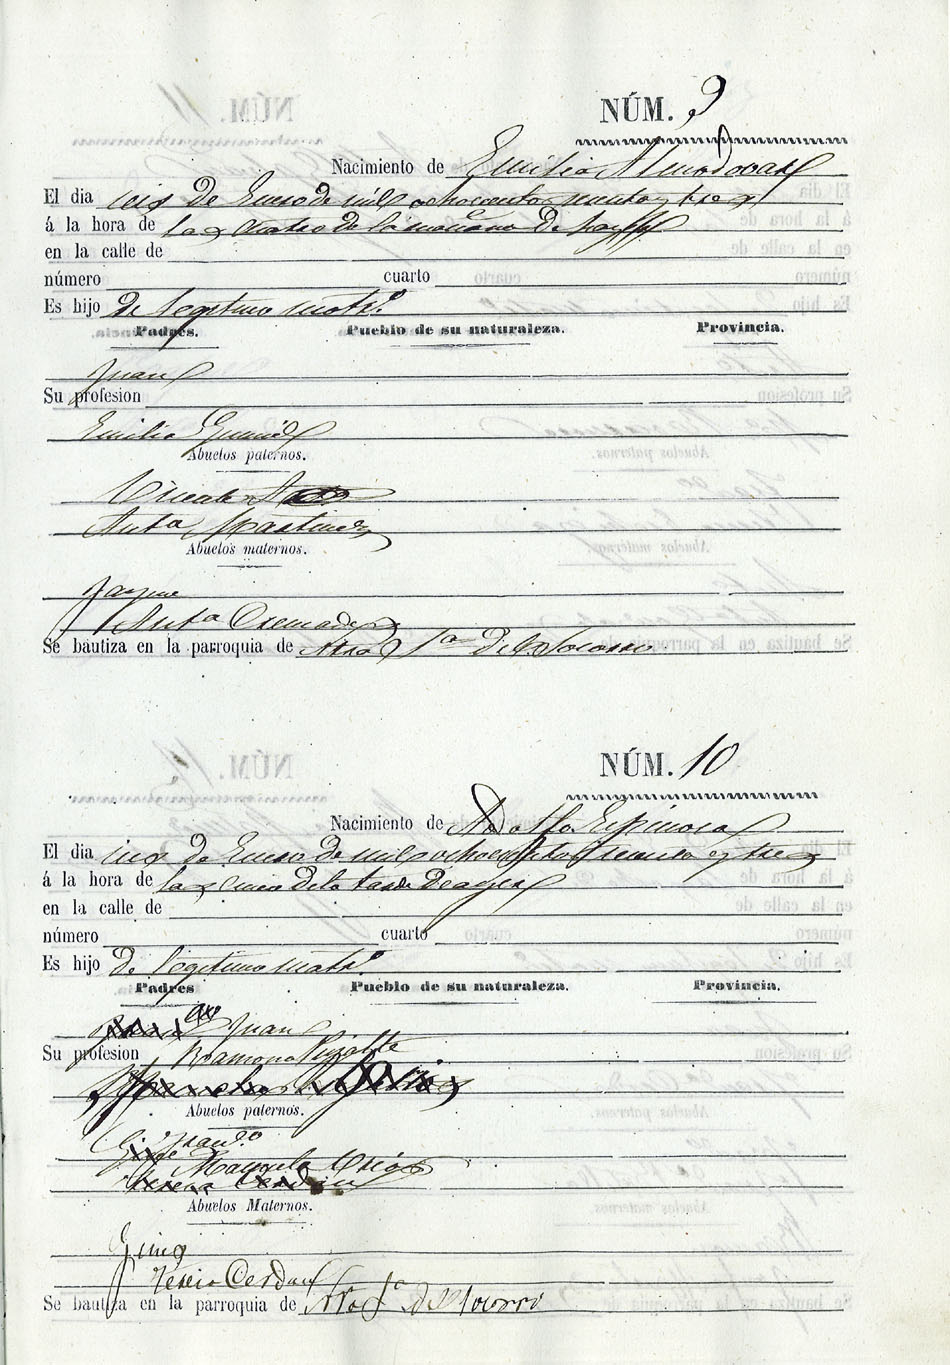 NÚM. 9
Nacimiento de Emilia Almodovar
El dia seis de Enero de mil ochocientos sesenta y tres
á la hora de las cuatro de la mañana de hoy
en la calle de
número cuarto
Es hijo de legitimo matr.º
Padres. Pueblo de su naturaleza. Provincia.
Juan
Su profesion
Emilia
Abuelos paternos.
Vicente
Anta Martinez
Abuelos maternos.
Jayme
Anta Cremades
Se bautiza en la parroquia de Ntra Sª del Socorro
NÚM. 10
Nacimiento de Adolfo Espinosa
El dia seis de Enero de mil ochocientos sesenta y tres
á la hora de las cinco de la tarde de ayer
en la calle de
número cuarto
Es hijo de legitimo matr.º
Padres Pueblo de su naturaleza. Provincia.
Juan
Su profesion Ramona
Abuelos paternos.
Franco
Manuela
Teresa Cerdan
Abuelos Maternos.
Gines
Teresa Cerdan
Se bautiza en la parroquia de Ntra Sª del Socorro